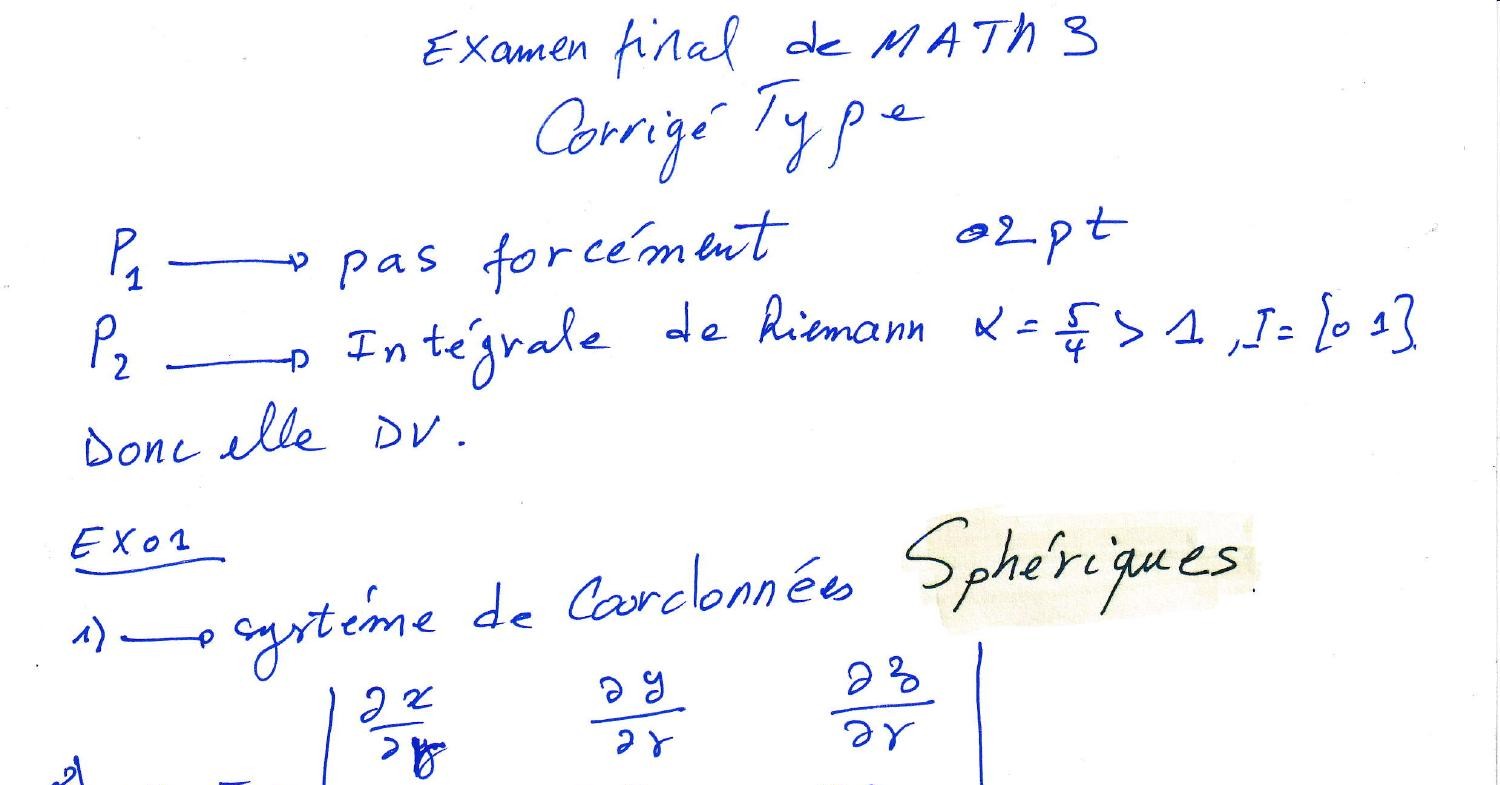 Examen final de MATH 3
Corrigé Type
P₁ → pas forcément 02 pt
P₂ → Intégrale de Riemann α = 5/4 > 1 , I = [0 1].
Donc elle DV.
EX01
1) → systéme de Coordonnées Sphériques
| ∂x/∂r ∂y/∂r ∂z/∂r |
2)